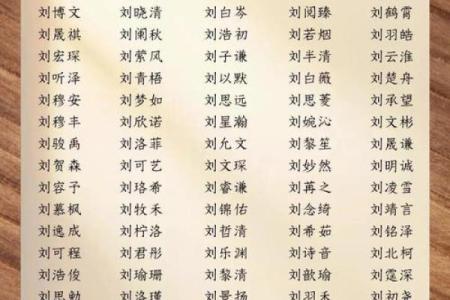 刘博文 刘晓清 刘白岑 刘阅臻 刘鹤霄
刘晟祺 刘阑秋 刘浩初 刘若烟 刘羽皓
刘宏琛 刘萦风 刘子谦 刘半清 刘云淮
刘听泽 刘青梧 刘以默 刘白薇 刘楚舟
刘穆安 刘梦如 刘思远 刘思菱 刘承望
刘穆丰 刘欣诺 刘星瀚 刘婉沁 刘文彬
刘骏禹 刘洛菲 刘允文 刘黎笙 刘晟谦
刘贺森 刘可艺 刘文琛 刘妙然 刘明诚
刘容子 刘珞希 刘睿谦 刘苒之 刘凌雪
刘慕枫 刘牧禾 刘锦佑 刘念绮 刘靖言
刘逸成 刘柠洛 刘哲清 刘希茹 刘铭泽
刘可程 刘君彤 刘乐渊 刘诗音 刘北柯
刘浩俊 刘瑜珊 刘黎清 刘歆瑜 刘霆深
刘思勉 刘洛瑾 刘景扬 刘羽禾 刘初尧